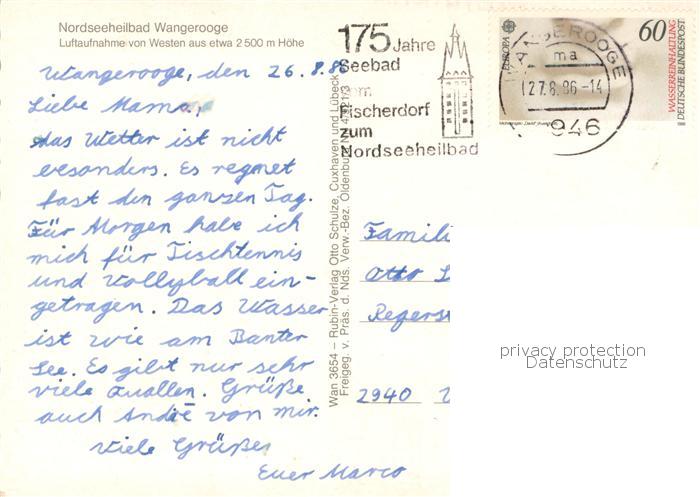 Nordseeheilbad Wangerooge
Luftaufnahme von Westen aus etwa 2500 m Höhe
Wangerooge, den 26.8.86
Liebe Mama,
das Wetter ist nicht
besonders. Es regnet
fast den ganzen Tag.
Für Morgen habe ich
mich für Tischtennis
und Vollyball ein-
getragen. Das Wasser
ist wie am Banter
See. Es gibt nur sehr
viele Quallen. Grüße
auch André von mir.
Viele Grüße
Euer Marco
Wan 3654 – Rubin-Verlag Otto Schulze, Cuxhaven und Lübeck
Freigeg. v. Präs. d. Nds. Verw.-Bez. Oldenburg Nr.
175 Jahre
Seebad
vom
Fischerdorf
zum
Nordseeheilbad
WANGEROOGE
ma
27.8.86-14
2946
EUROPA
60
WASSERREINHALTUNG
DEUTSCHE BUNDESPOST
Famili
Otto
2940
privacy protection
Datenschutz